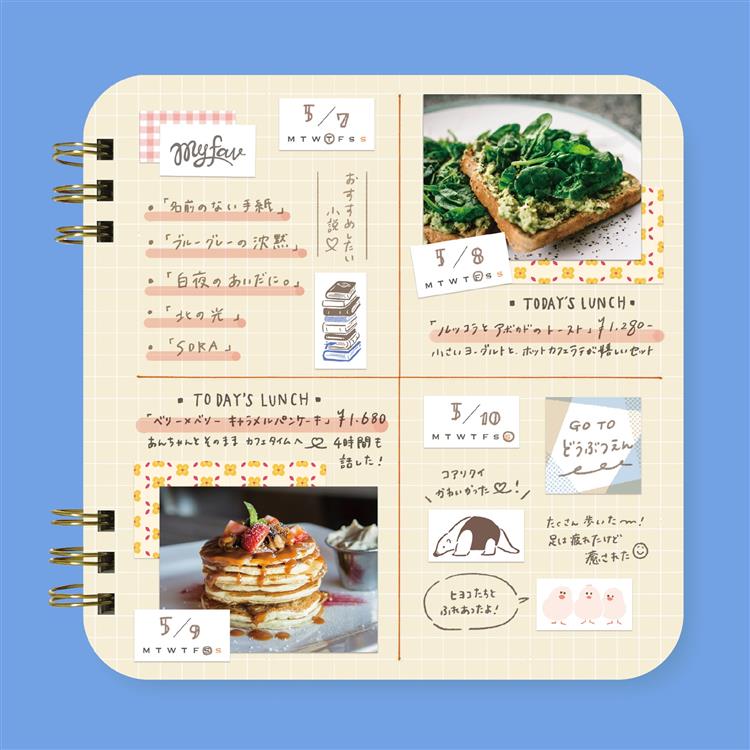 My fav
5/7
M T W T F S S
おすすめしたい
小説♡
•「名前のない手紙」
•「ブルーグレーの沈黙」
•「白夜のあいだに。」
•「北の光」
•「SORA」
5/8
M T W T F S S
▪ TODAY'S LUNCH ▪
「ルッコラとアボカドのトースト」¥1.280-
小さいヨーグルトと、ホットカフェラテが嬉しいセット
▪ TODAY'S LUNCH ▪
「ベリー×ベリー キャラメルパンケーキ」¥1.680
あんちゃんとそのまま カフェタイムへ♡ 4時間も
話した!
5/9
M T W T F S S
5/10
M T W T F S S
GO TO
どうぶつえん
コアリクイ
かわいかった♡!
たくさん歩いた〜!
足は疲れたけど
癒された☺
ヒヨコたちと
ふれあったよ!